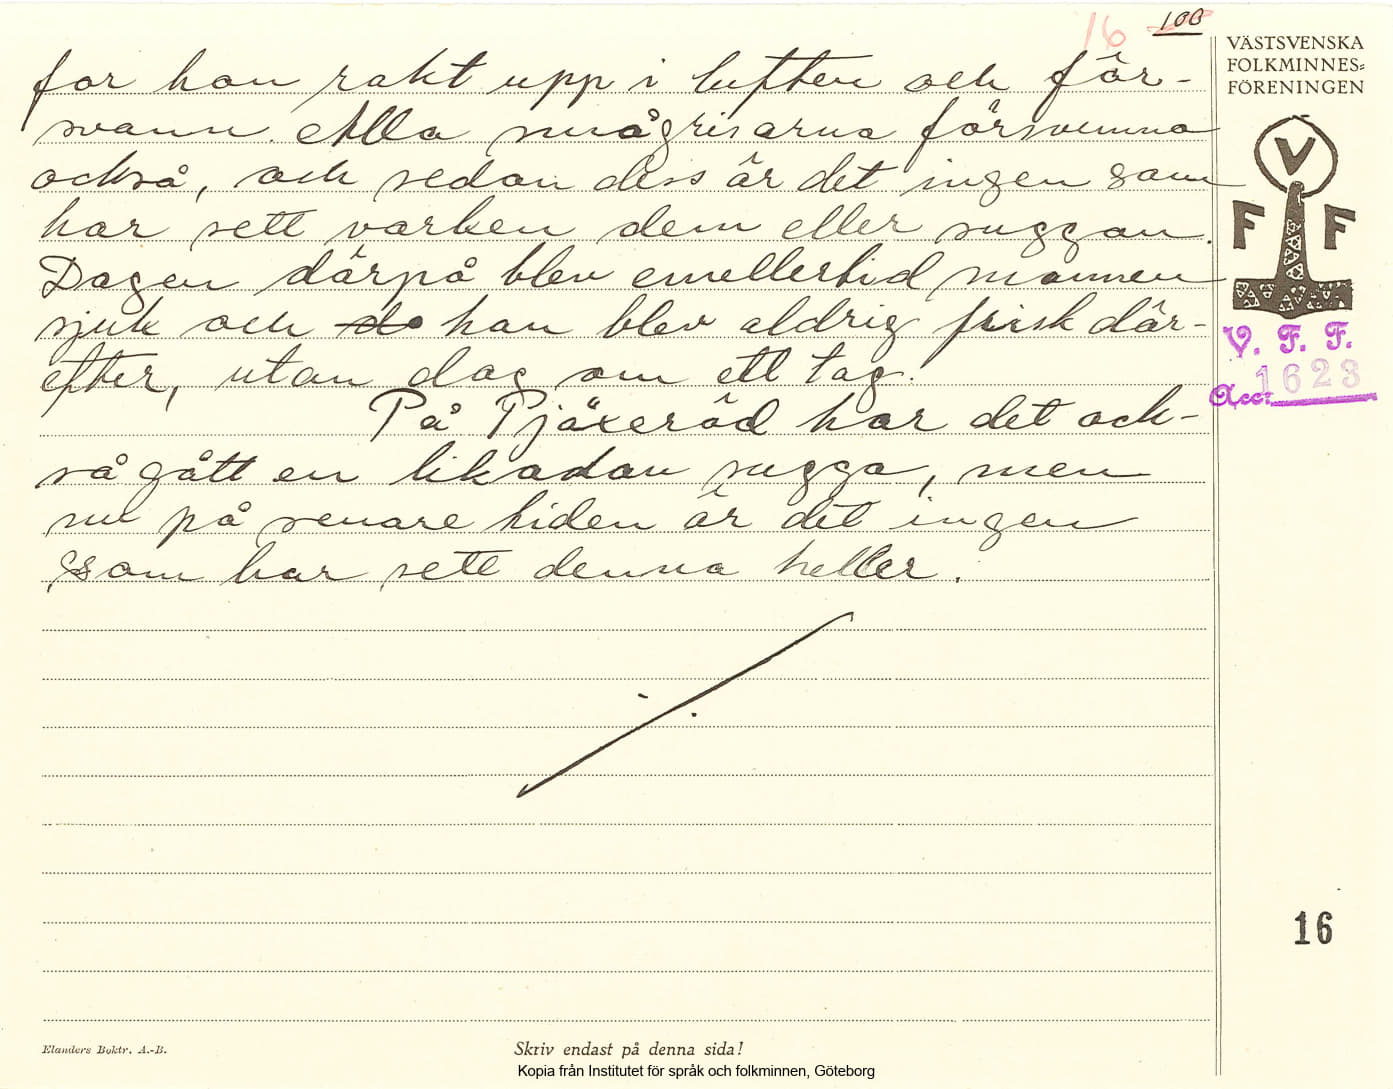 16 100
for hon rakt upp i luften och för-
svann. Alla smågrisarna försvunno
också, och sedan dess är det ingen som
har sett varken dem eller suggan.
Dagen därpå blev emellertid mannen
sjuk och do han blev aldrig frisk där-
efter, utan dog om ett tag.
På Pjäxeröd har det ock-
så gått en likadan sugga, men
nu på senare tiden är det ingen
som har sett denna heller.
VÄSTSVENSKA
FOLKMINNES=
FÖRENINGEN
V
F F
V. F. F.
Acc. 1623
16
Elanders Boktr. A.-B.
Skriv endast på denna sida!
Kopia från Institutet för språk och folkminnen, Göteborg